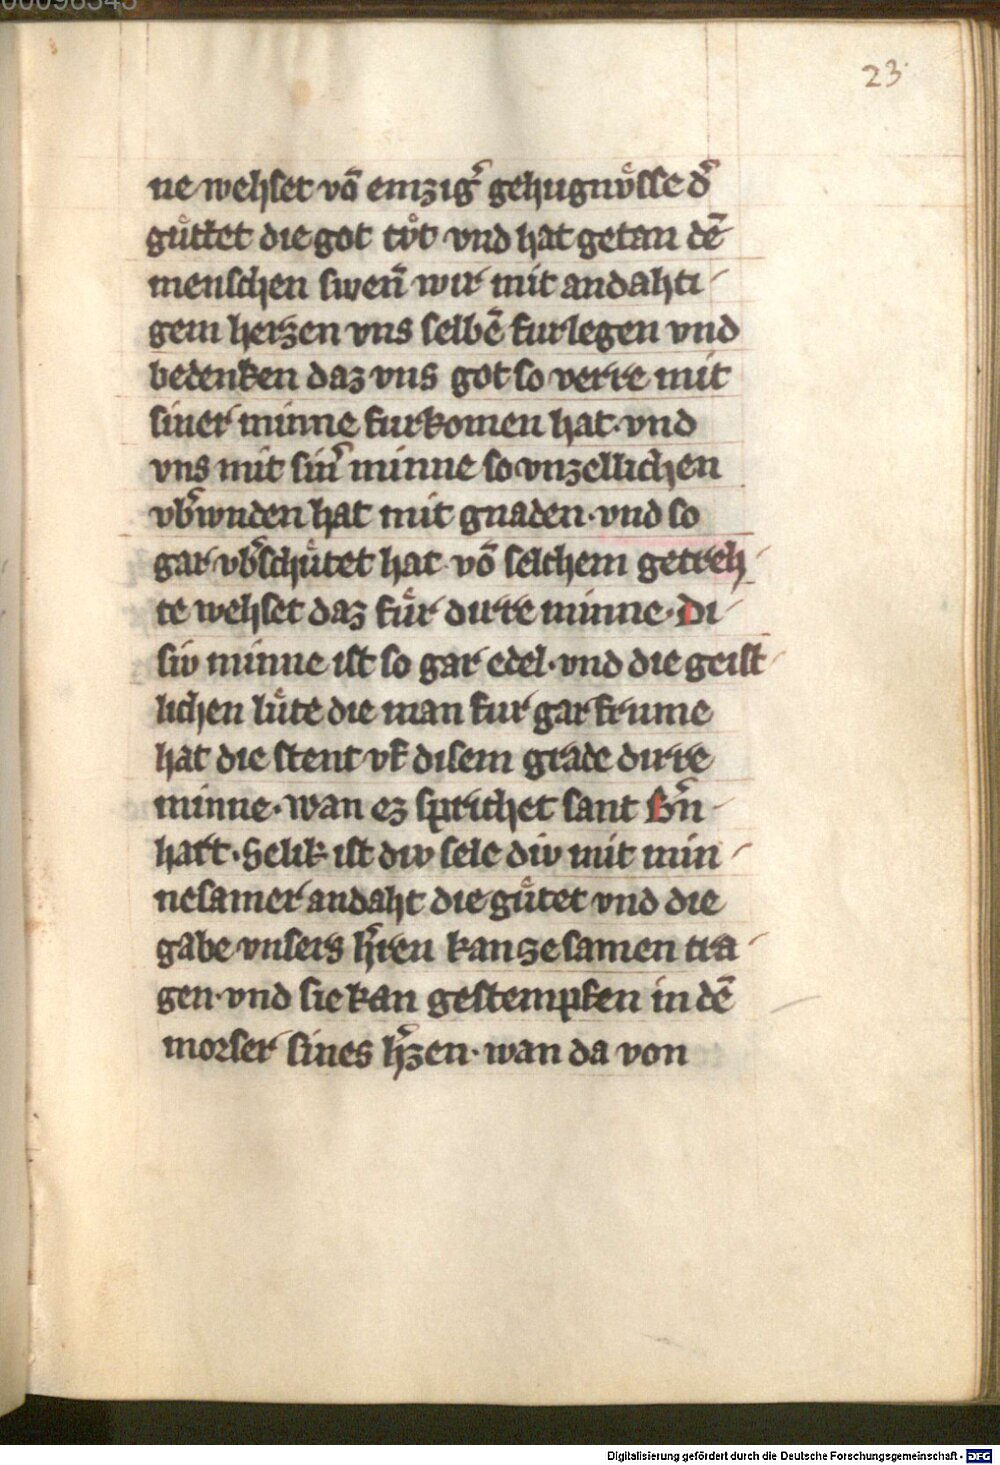 00096343
23
ne wehset vō emzigˀ gehugnvͤsse dˀ
guͤtet die got tvͦt vnd hat getan dē
menschen swen̄ wir mit andahti
gem herzen vns selbē furlegen vnd
bedenken daz vns got so verre mit
siner minne furkomen hat·vnd
vns mit sinˀ minne so vnzellichen
vbˀwnden hat mit gnaden·vnd so
gar vbˀschuͤtet hat vō selchem getreh
te wehset daz fuͤr dirre minne·Di
siv minne ist so gar edel·vnd die geist
lichen luͤte die man fur gar frume
hat die stent vf disem grade dirre
minne·wan ez sprichet sant Bˀn
hart·Selik ist div sele div mit min
nesamer andaht die guͤtet vnd die
gabe vnsers hˀren kan zesamen tra
gen·vnd sie kan gestempfen in dē
morser sines hˀzen·wan da von
Digitalisierung gefördert durch die Deutsche Forschungsgemeinschaft - DFG